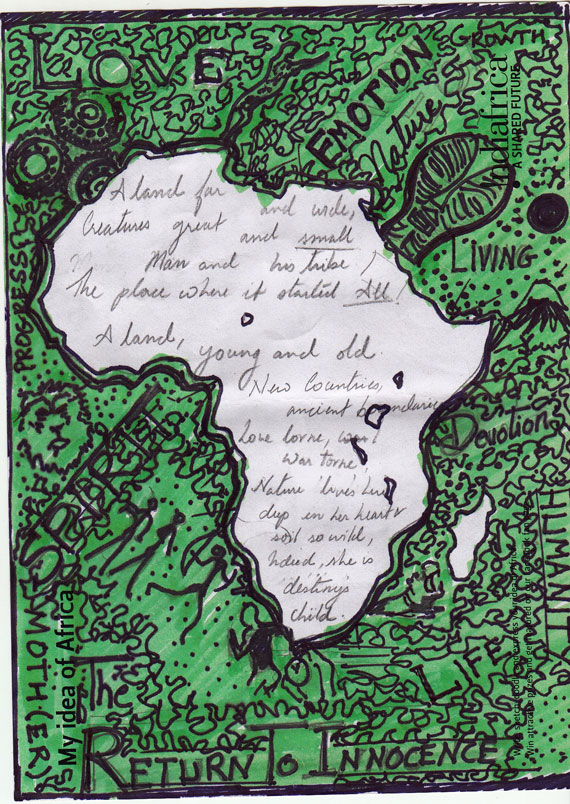 LOVE
GROWTH
EMOTION
Nature
indiafrica
A SHARED FUTURE
LIVING
PROGRESS
A land far and wide,
Creatures great and small
Man and his tribe!
The place where it started All!
A land, young and old.
New Countries,
ancient boundaries
Love lorne,
War torne,
Nature lives here
deep in her heart
soil so wild,
Indeed, she is
destinys
child.
Devotion
SPIRIT
HUMANITY
LIFE
MOTH(ER)
My idea of Africa
The
RETURN TO INNOCENCE